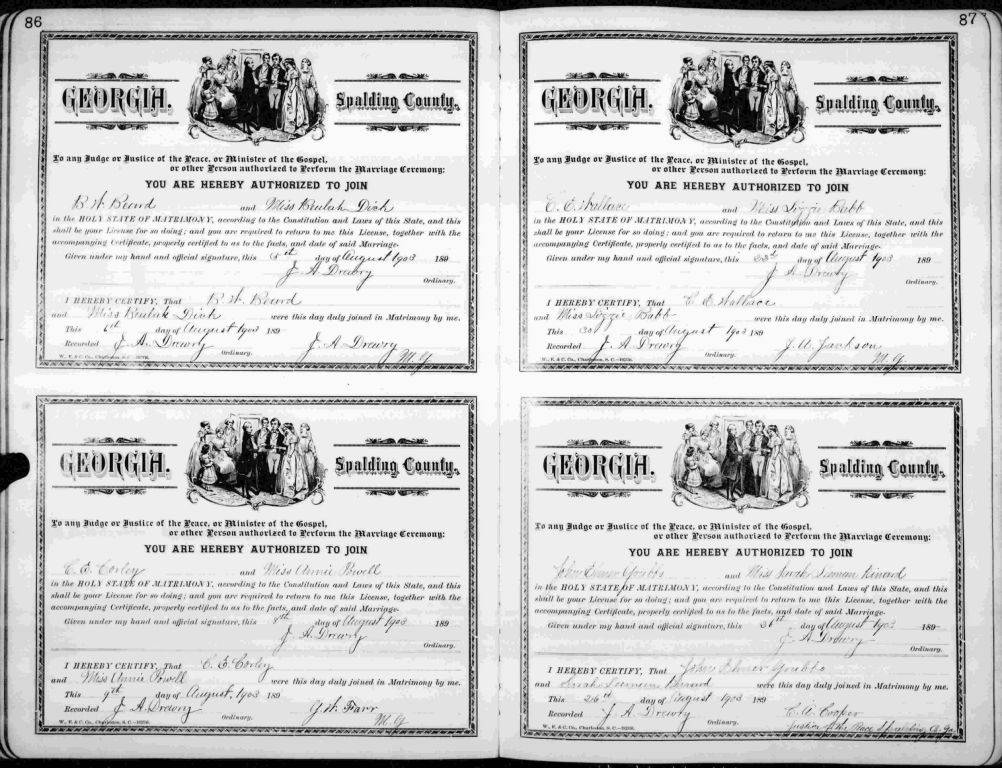 86
GEORGIA. Spalding County.
To any Judge or Justice of the Peace, or Minister of the Gospel,
or other Person authorized to Perform the Marriage Ceremony:
YOU ARE HEREBY AUTHORIZED TO JOIN
B. W. and Miss Beulah Dick
in the HOLY STATE OF MATRIMONY, according to the Constitution and Laws of this State, and this
shall be your License for so doing; and you are required to return to me this License, together with the
accompanying Certificate, properly certified as to the facts, and date of said Marriage.
Given under my hand and official signature, this day of August 1903 189
J. A. Drewry
Ordinary.
I HEREBY CERTIFY, That B. W.
and Miss Beulah Dick were this day duly joined in Matrimony by me.
This 6th day of August 1903 189
Recorded J. A. Drewry J. A. Drewry
Ordinary. M. G.
W., E. & C. Co., Charleston, S. C.
GEORGIA. Spalding County.
To any Judge or Justice of the Peace, or Minister of the Gospel,
or other Person authorized to Perform the Marriage Ceremony:
YOU ARE HEREBY AUTHORIZED TO JOIN
C. E. Corley and Miss Annie Powell
in the HOLY STATE OF MATRIMONY, according to the Constitution and Laws of this State, and this
shall be your License for so doing; and you are required to return to me this License, together with the
accompanying Certificate, properly certified as to the facts, and date of said Marriage.
Given under my hand and official signature, this day of August 1903 189
J. A. Drewry
Ordinary.
I HEREBY CERTIFY, That C. E. Corley
and Miss Annie Powell were this day duly joined in Matrimony by me.
This 9th day of August, 1903 189
Recorded J. A. Drewry Farr
Ordinary. M. G.
W., E. & C. Co., Charleston, S. C.
87
GEORGIA. Spalding County.
To any Judge or Justice of the Peace, or Minister of the Gospel,
or other Person authorized to Perform the Marriage Ceremony:
YOU ARE HEREBY AUTHORIZED TO JOIN
C. E. Wallace and Miss Lizzie Babb
in the HOLY STATE OF MATRIMONY, according to the Constitution and Laws of this State, and this
shall be your License for so doing; and you are required to return to me this License, together with the
accompanying Certificate, properly certified as to the facts, and date of said Marriage.
Given under my hand and official signature, this day of August 1903 189
J. A. Drewry
Ordinary.
I HEREBY CERTIFY, That C. E. Wallace
and Miss Lizzie Babb were this day duly joined in Matrimony by me.
This 30 day of August 1903 189
Recorded J. A. Drewry Jackson
Ordinary. M. G.
W., E. & C. Co., Charleston, S. C.
GEORGIA. Spalding County.
To any Judge or Justice of the Peace, or Minister of the Gospel,
or other Person authorized to Perform the Marriage Ceremony:
YOU ARE HEREBY AUTHORIZED TO JOIN
John Elmer Grubbs and Miss Sarah Kinard
in the HOLY STATE OF MATRIMONY, according to the Constitution and Laws of this State, and this
shall be your License for so doing; and you are required to return to me this License, together with the
accompanying Certificate, properly certified as to the facts, and date of said Marriage.
Given under my hand and official signature, this 26th day of August 1903 189
J. A. Drewry
Ordinary.
I HEREBY CERTIFY, That John Elmer Grubbs
and Sarah Kinard were this day duly joined in Matrimony by me.
This 26th day of August 1903 189
Recorded J. A. Drewry C. A. Cooper
Ordinary. Justice of the Peace Spalding Co. Ga.
W., E. & C. Co., Charleston, S. C.